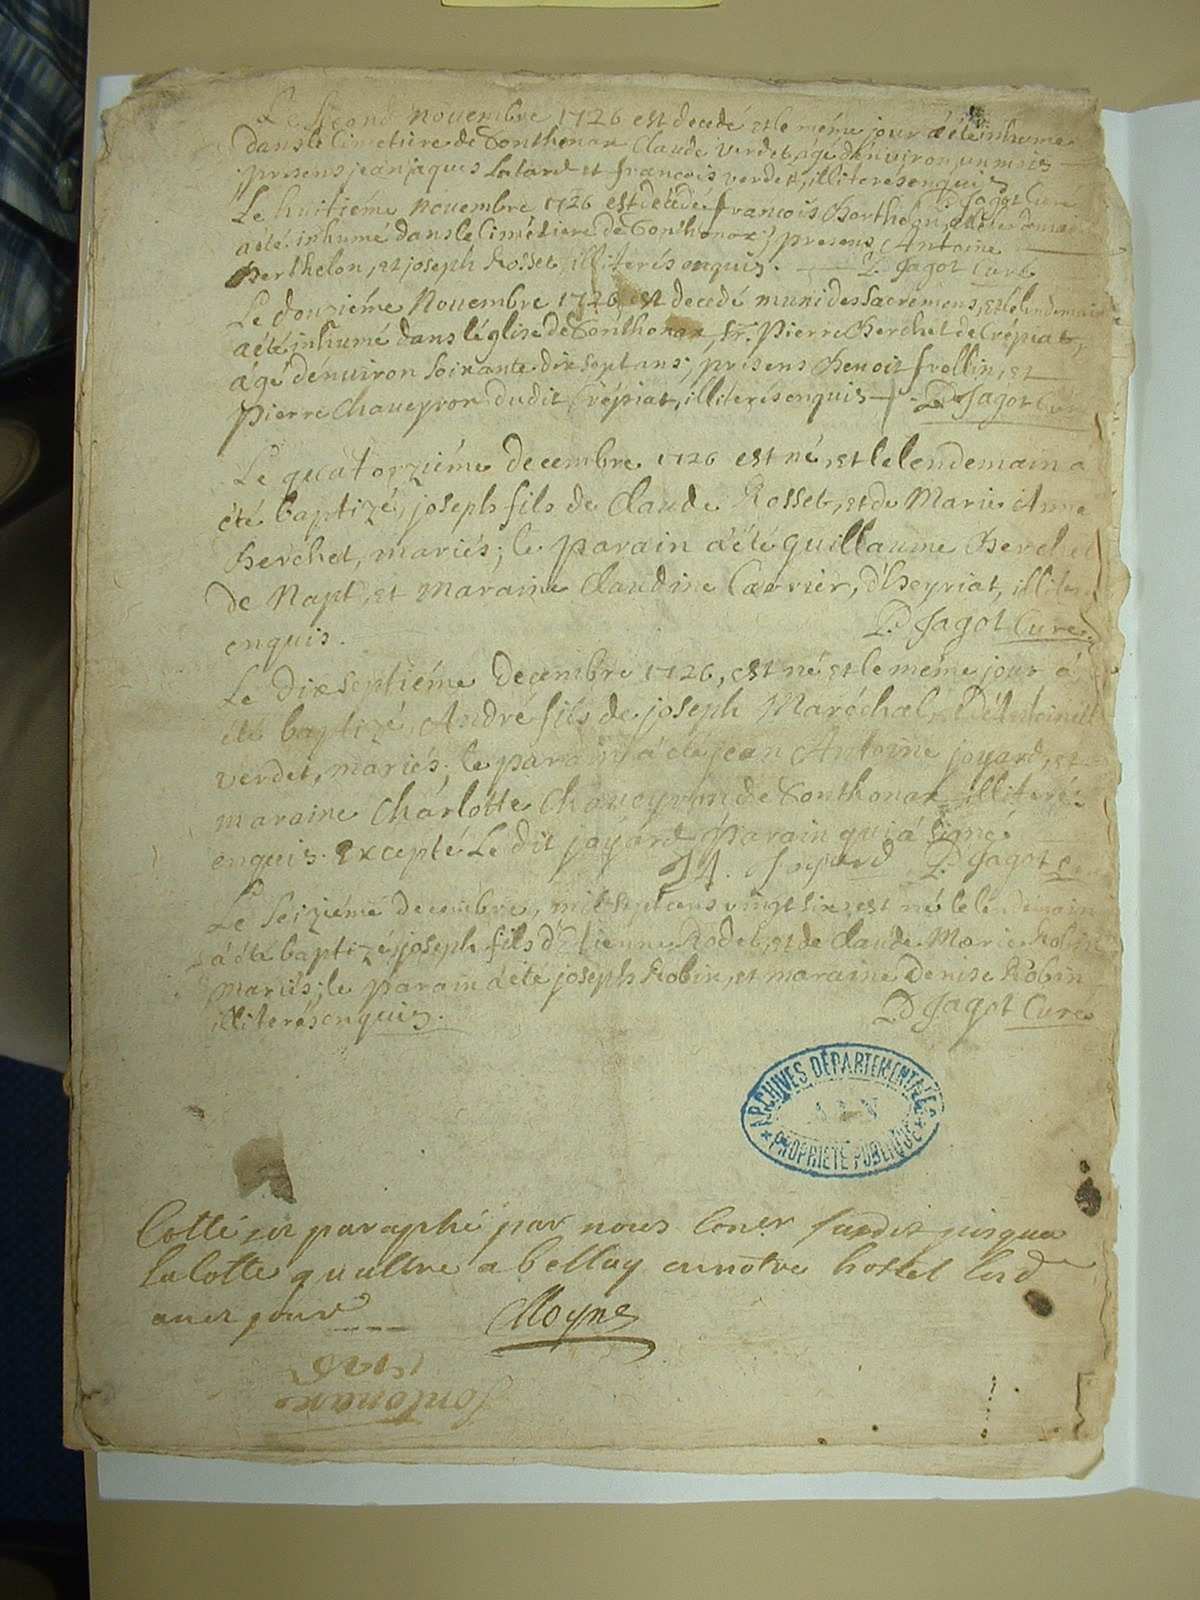 Le second novembre 1726 est decedé et le même jour a été inhumé
dans le Cimetiere de Sonthonax Claude verdet, agé d'environ un mois
presens jean jaques Latard et françois verdet, illiterés enquis D. Jagot Curé
Le huitiéme novembre 1726 est décédé françois Berthelon, et le lendemain
a été inhumé dans le Cimétiere de Sonthonax; presens Antoine
Berthelon, et joseph Rosset illiterés enquis. D. Jagot Curé
Le douziéme Novembre 1726 est decedé muni des sacremens, et le lendemain
a été inhumé dans l'église de Sonthonax, Sr. Pierre Berchet de Crépiat,
âgé d'environ soixante dix sept ans; présens Benoit frollin, et
Pierre Chaveyron dudit Crépiat, illiterés enquis D. Jagot Curé
Le quatorziéme decembre 1726 est né, et le lendemain a
été baptizé, joseph fils de Claude Rosset, et de Marie Anne
Berchet, mariés; le parain a été guillaume Berchet
de Napt, et maraine Claudine Carrier, d'heyriat, illiterés
enquis. D. Jagot Curé
Le dix septiéme decembre 1726, est né et le même jour à
été baptizé, André fils de joseph Maréchal, et D'Antoinette
verdet, mariés; le parain à été jean Antoine joyard, et
maraine Charlotte Chaveyron de Sonthonax illiterés
enquis. Excepté Le dit joyard Parain qui à signé
J A. Joyard D. Jagot c.
Le seiziéme decembre, mil sept cens vingt six, est né le lendemain
à été baptizé, joseph fils d'Etienne Rodet, et de Claude Marie Robin
mariés; le parain a été joseph Robin, et maraine Denise Robin
illiterés enquis. D Jagot Curé
ARCHIVES DÉPARTEMENTALES
AIN
PROPRIÉTÉ PUBLIQUE
Cotté et paraphé par nous Coner susdit jusqua
la Cotte quattre a bellay en notre hostel les d
an et jour Moyne
1726
Sontonax